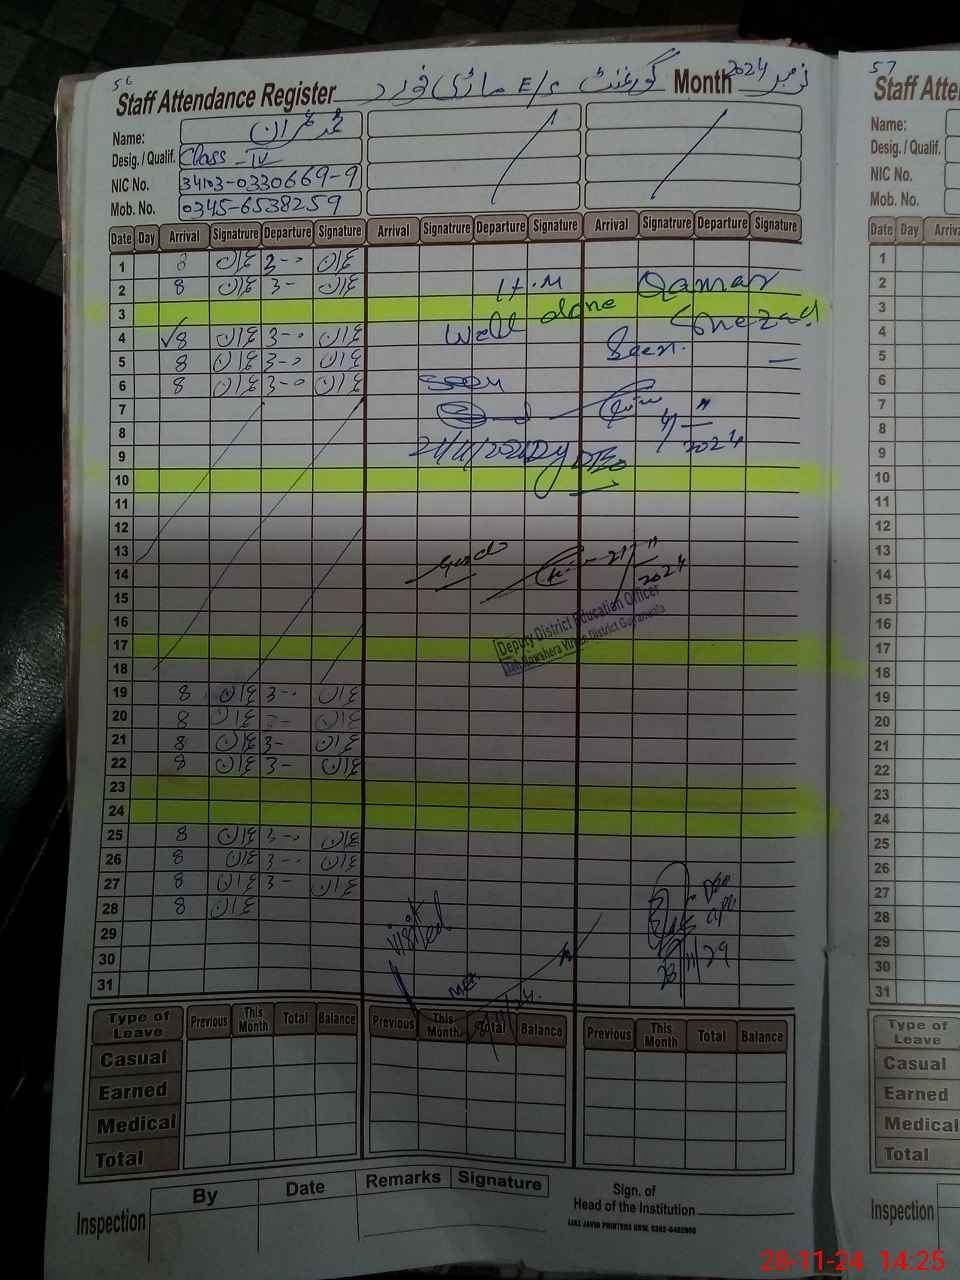 56
Staff Attendance Register گورنمنٹ E/S ماڑی خورد Month نومبر 2024
Name: محمد عمران
Desig. / Qualif. Class - IV
NIC No. 34103-0330669-9
Mob. No. 0345-6538259
Date Day Arrival Signatrure Departure Signature Arrival Signatrure Departure Signature Arrival Signatrure Departure Signature
1 8 عمران 3-0 عمران
2 8 عمران 3- عمران H.M Qamar
3 Well done Shezad
4 8 عمران 3-0 عمران Seen.
5 8 عمران 3-0 عمران
6 8 عمران 3-0 عمران Seen
7
8 4/11/2024
9 21/11/2024 Dy DEO
10
11
12
13 Good 21/11/2024
14
15 Deputy District Education Officer
16 Teh. Nowshera Virkan District Gujranwala
17
18
19 8 عمران 3-0 عمران
20 8 عمران 3- عمران
21 8 عمران 3- عمران
22 8 عمران 3- عمران
23
24
25 8 عمران 3-0 عمران
26 8 عمران 3-0 عمران
27 8 عمران 3- عمران
28 8 عمران
29 Visited
30 28/11/24
31 MEA
Type of Leave Previous This Month Total Balance Previous This Month Total Balance Previous This Month Total Balance
Casual
Earned
Medical
Total
Inspection By Date Remarks Signature
Sign. of
Head of the Institution
IJAZ JAVID PRINTERS GRW.
57
Staff Atte
Name:
Desig. / Qualif.
NIC No.
Mob. No.
Date Day Arriva
1
2
3
4
5
6
7
8
9
10
11
12
13
14
15
16
17
18
19
20
21
22
23
24
25
26
27
28
29
30
31
Type of Leave
Casual
Earned
Medical
Total
Inspection
28-11-24 14:25